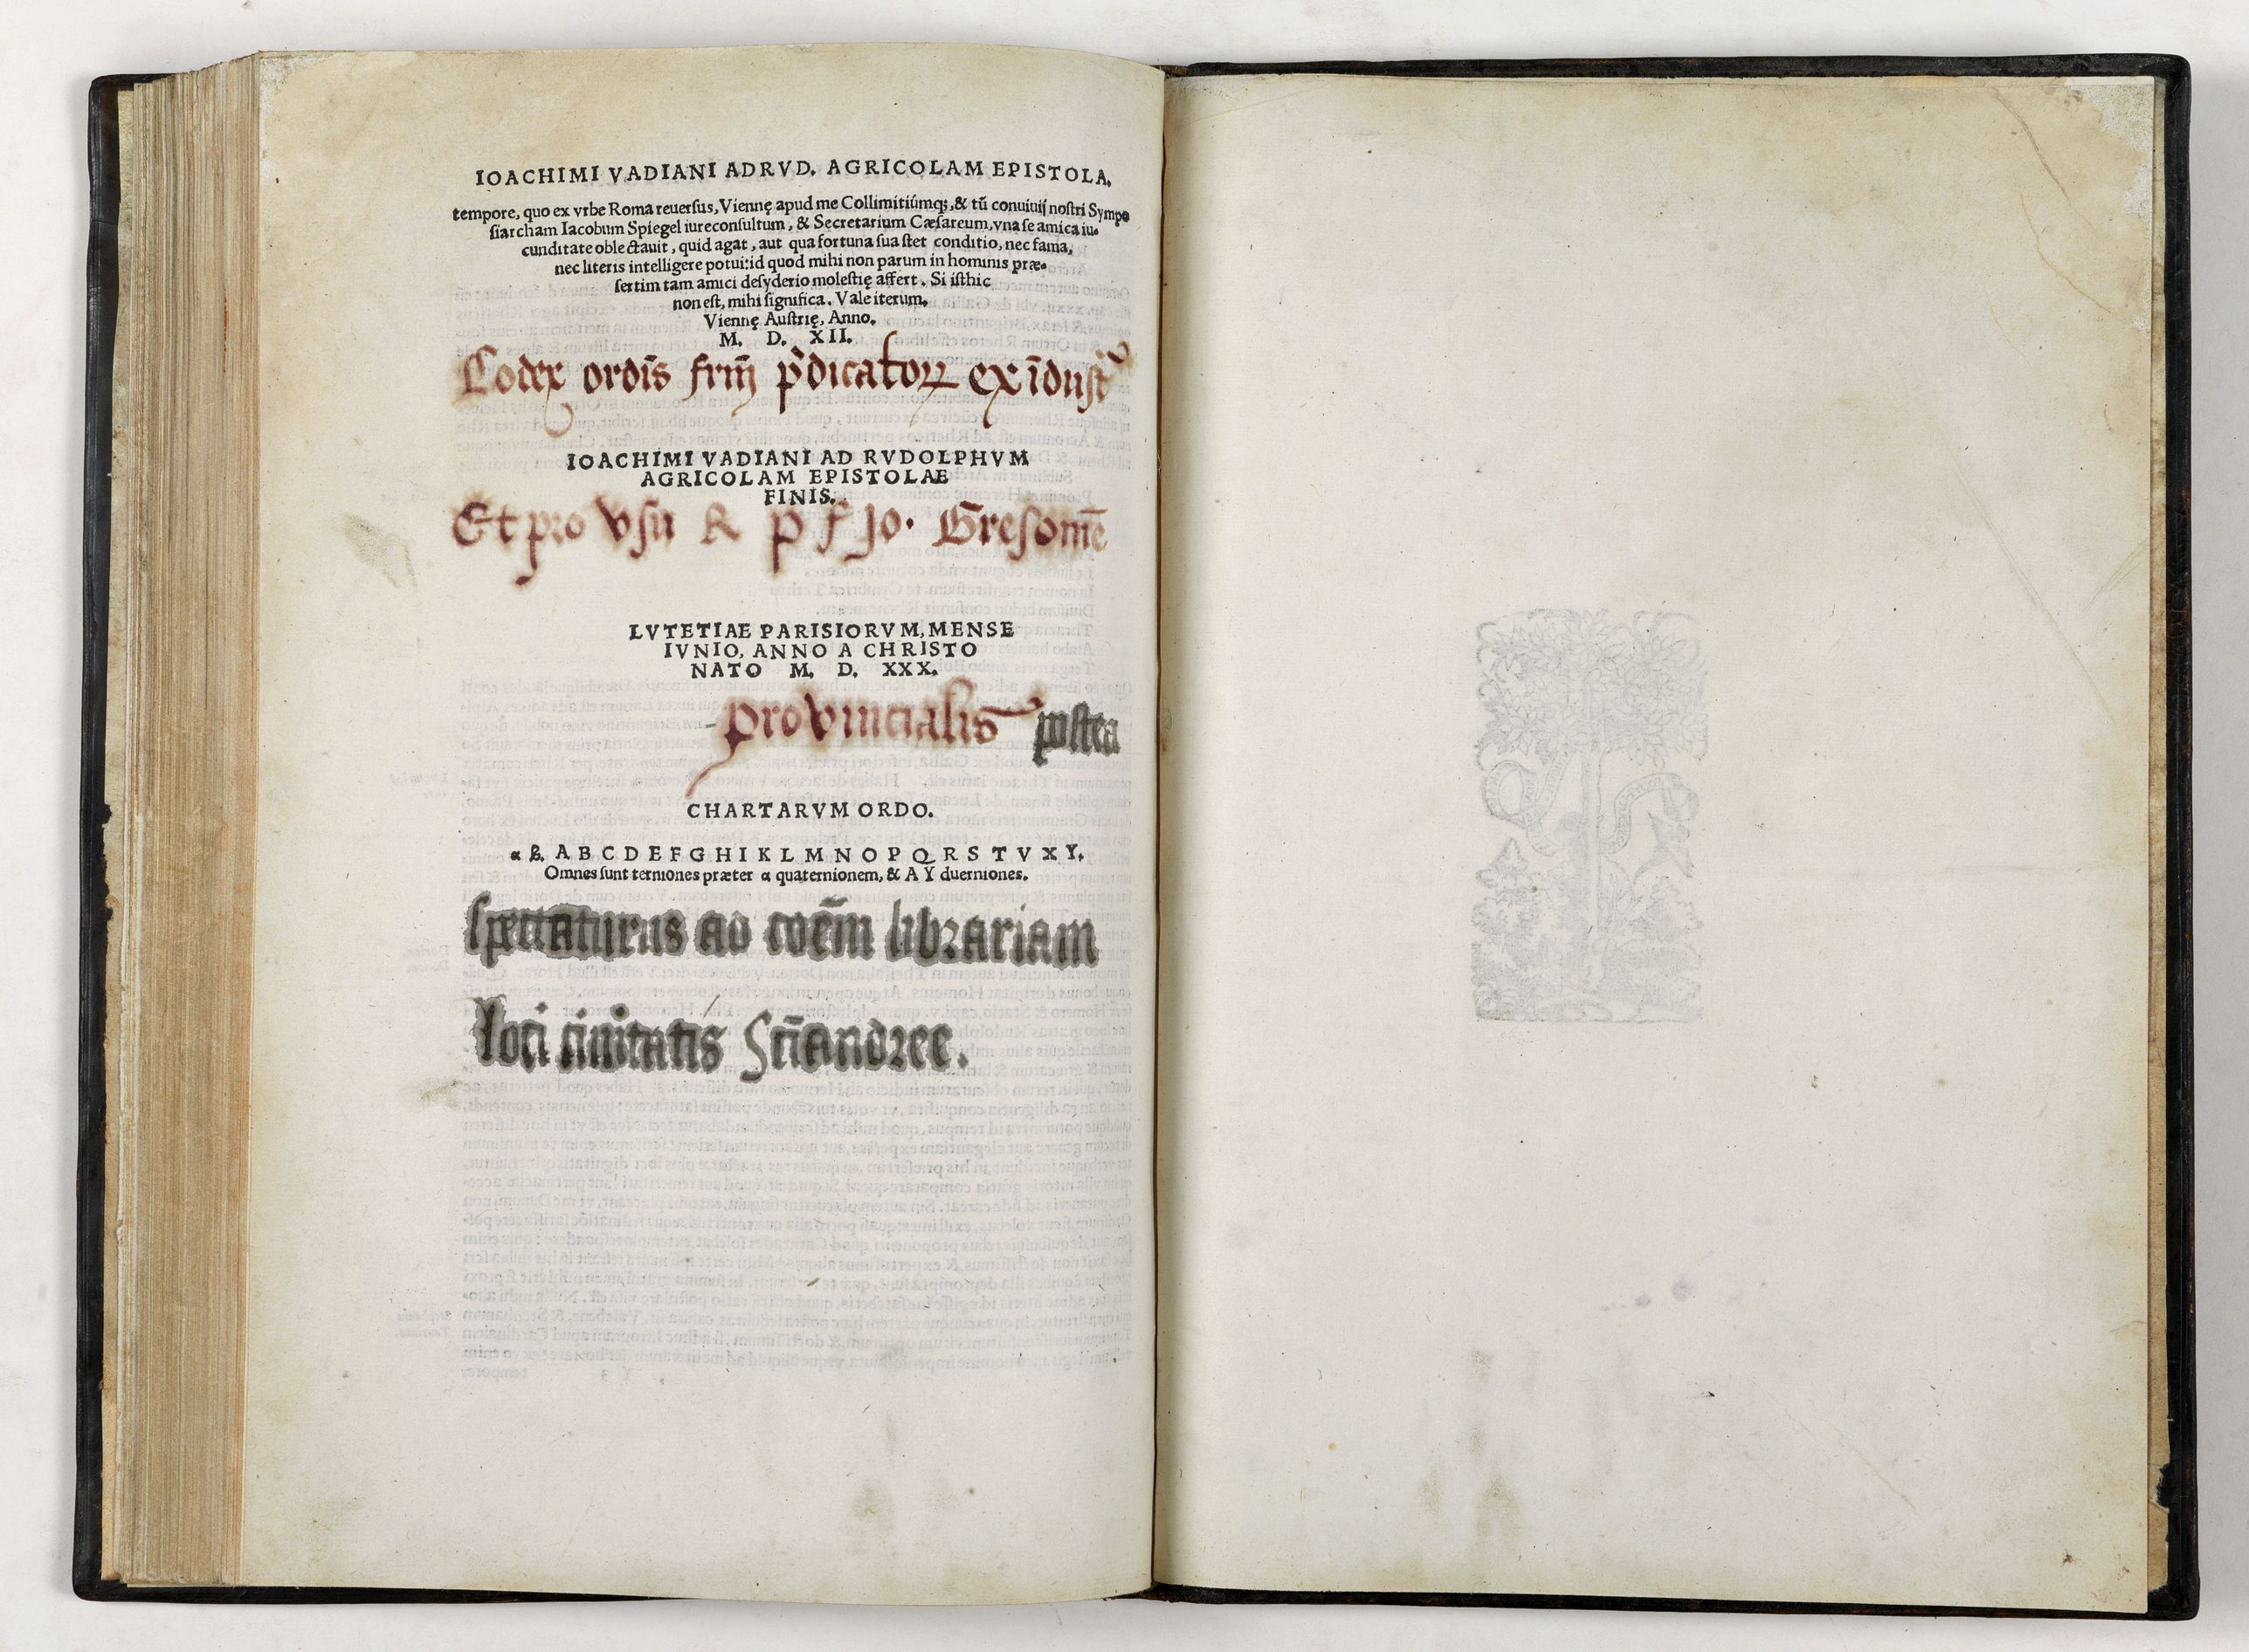 IOACHIMI VADIANI AD RVD. AGRICOLAM EPISTOLA.
tempore, quo ex vrbe Roma reuersus, Viennę apud me Collimitiúmq;, & tū conuiuij nostri Sympo
siarcham Iacobum Spiegel iureconsultum, & Secretarium Cæsareum, vna se amica iu-
cunditate oblectauit, quid agat, aut qua fortuna sua stet conditio, nec fama,
nec literis intelligere potui: id quod mihi non parum in hominis præ-
sertim tam amici desyderio molestię affert. Si isthic
non est, mihi significa. Vale iterum.
Viennę Austrię, Anno.
M. D. XII.
Codex ordīs frm̄ p̄dicatoꝝ ex īdust
IOACHIMI VADIANI AD RVDOLPHVM
AGRICOLAM EPISTOLAE
FINIS.
Et pro vsu R p f Jo. Gresomē
LVTETIAE PARISIORVM, MENSE
IVNIO, ANNO A CHRISTO
NATO M. D. XXX.
provincialis postea
CHARTARVM ORDO.
α β. A B C D E F G H I K L M N O P Q R S T V X Y.
Omnes sunt terniones præter α quaternionem, & A Y duerniones.
spectaturus ad coēm librariam
loci ciuitatis Sctiandree.